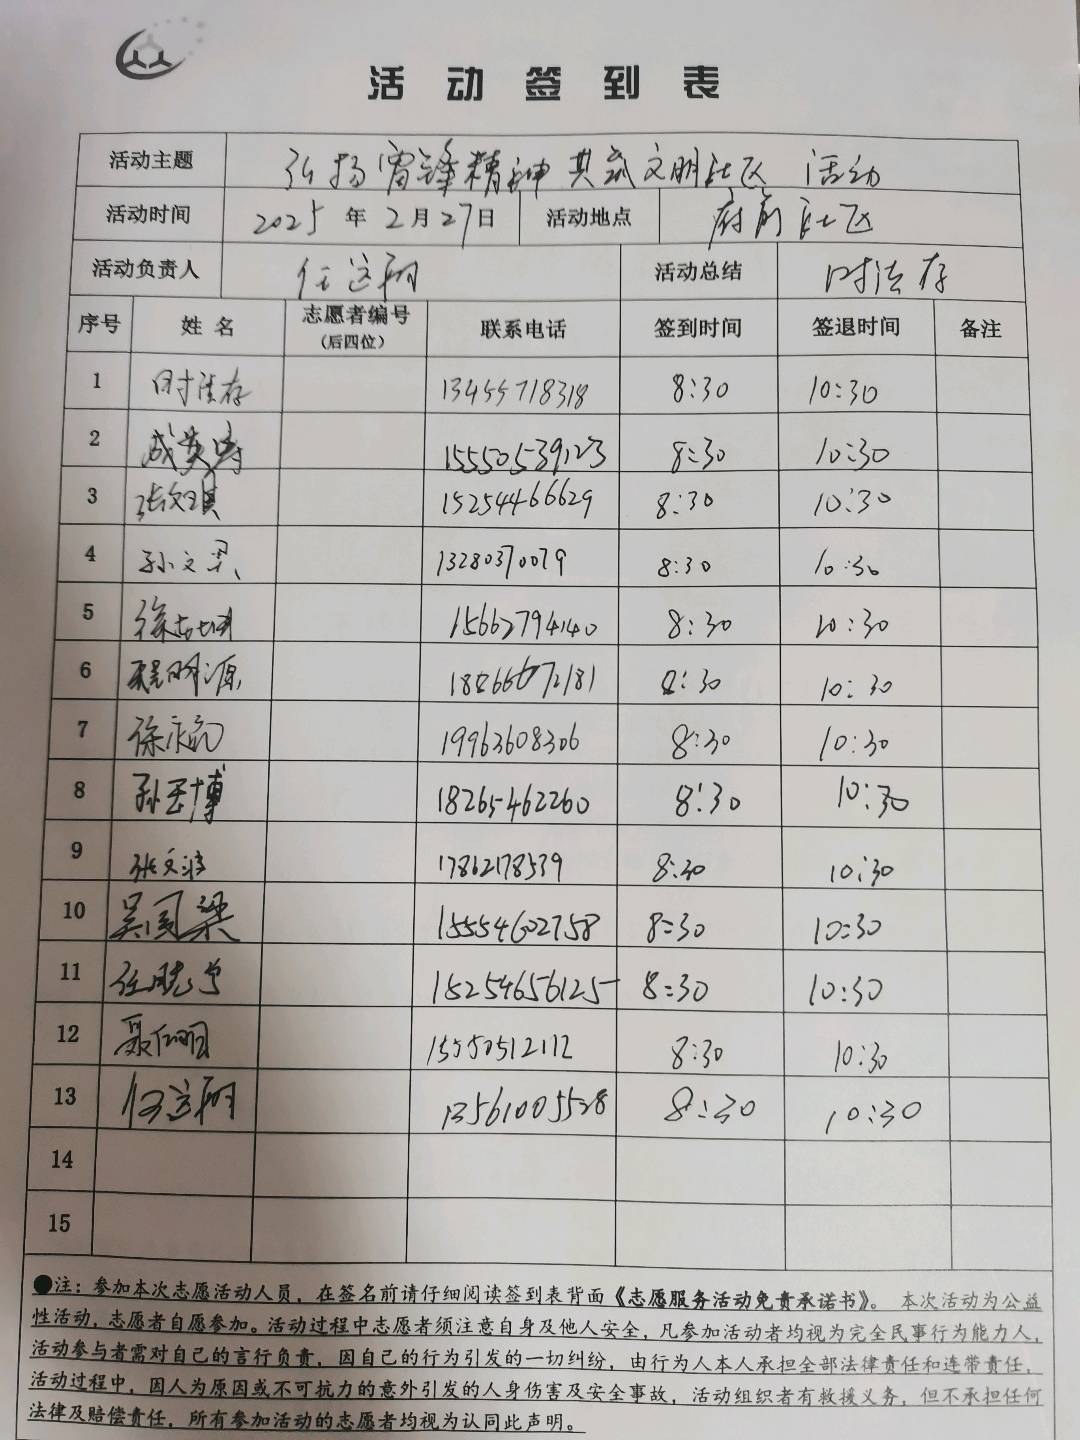 活动签到表
活动主题 弘扬雷锋精神 共筑文明社区 活动
活动时间 2025年2月27日 活动地点 府前社区
活动负责人 任这翔 活动总结 时法存
序号 姓名 志愿者编号（后四位） 联系电话 签到时间 签退时间 备注
1 时法存 13455718318 8:30 10:30
2 成英涛 15550539123 8:30 10:30
3 张文琪 15254466629 8:30 10:30
4 孙文 13280370079 8:30 10:30
5 徐 15662794140 8:30 10:30
6 明源 18866672181 8:30 10:30
7 徐 19963608306 8:30 10:30
8 孙玉博 18265462260 8:30 10:30
9 张文 17862178539 8:30 10:30
10 吴周梁 15554602758 8:30 10:30
11 任晓 15254656125 8:30 10:30
12 聂 15550512112 8:30 10:30
13 任这翔 13561005528 8:30 10:30
14
15
●注：参加本次志愿活动人员，在签名前请仔细阅读签到表背面《志愿服务活动免责承诺书》。本次活动为公益
性活动，志愿者自愿参加。活动过程中志愿者须注意自身及他人安全，凡参加活动者均视为完全民事行为能力人，
活动参与者需对自己的言行负责，因自己的行为引发的一切纠纷，由行为人本人承担全部法律责任和连带责任，
活动过程中，因人为原因或不可抗力的意外引发的人身伤害及安全事故，活动组织者有救援义务，但不承担任何
法律及赔偿责任，所有参加活动的志愿者均视为认同此声明。